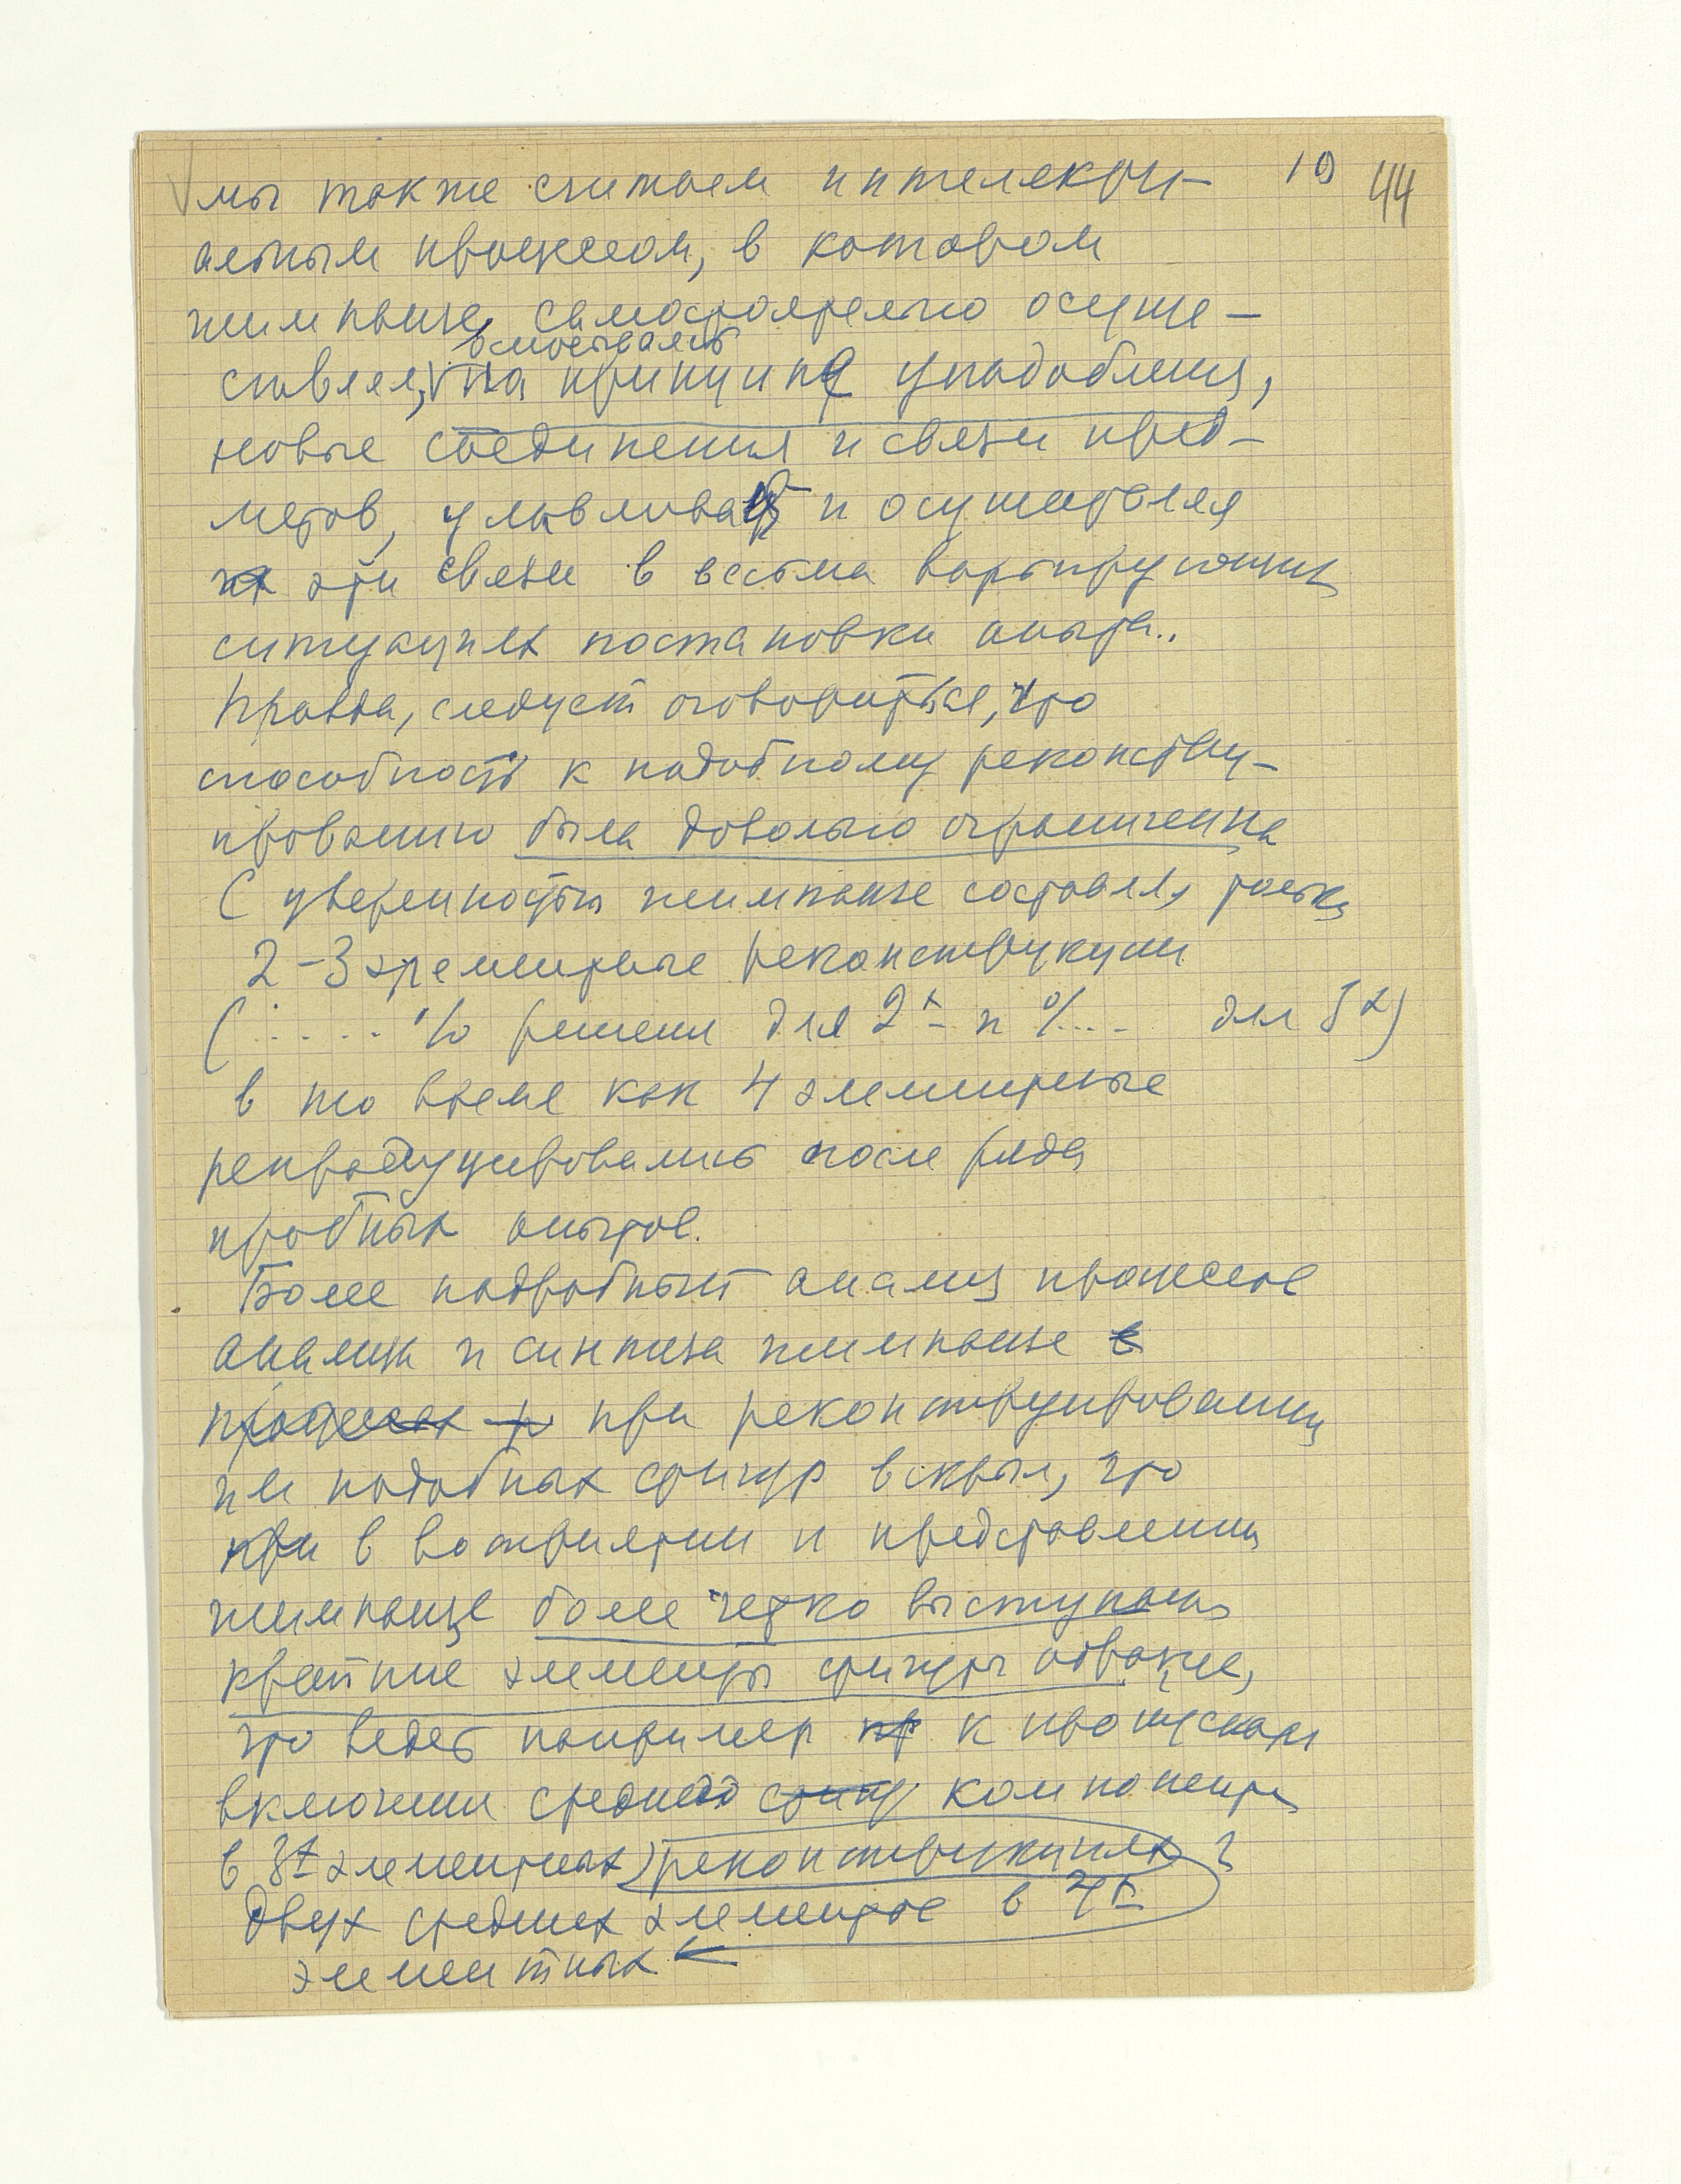 10 44
мы также считаем интеллекту-
альным процессом, в котором
шимпанзе, самостоятельно осуще-
основываясь
ствлял, на принципе уподобления,
новые соединения и связи пред-
метов, улавливая и осуществляя
эти связи в весьма варьирующих
ситуациях постановки опыта..
Правда, следует оговориться, что
способность к подобному реконстру-
ированию была довольно ограничена
С уверенностью шимпанзе составлял только
2-3 элементные реконструкции
(..... % решений для 2х и %... для 3х)
в то время как 4 элементные
репродуцировались после ряда
пробных опытов.
Более подробный анализ процессов
анализа и синтеза шимпанзе в
процессах р при реконструировании
им подобных фигур вскрыл, что
при в восприятии и представлении
шимпанзе более четко выступают
крайние элементы фигуры образца,
что ведет например пр к пропускам
включения среднего фигур компонента
в 3х элементных реконструкциях ?
двух средних элементов в 4х
элементных